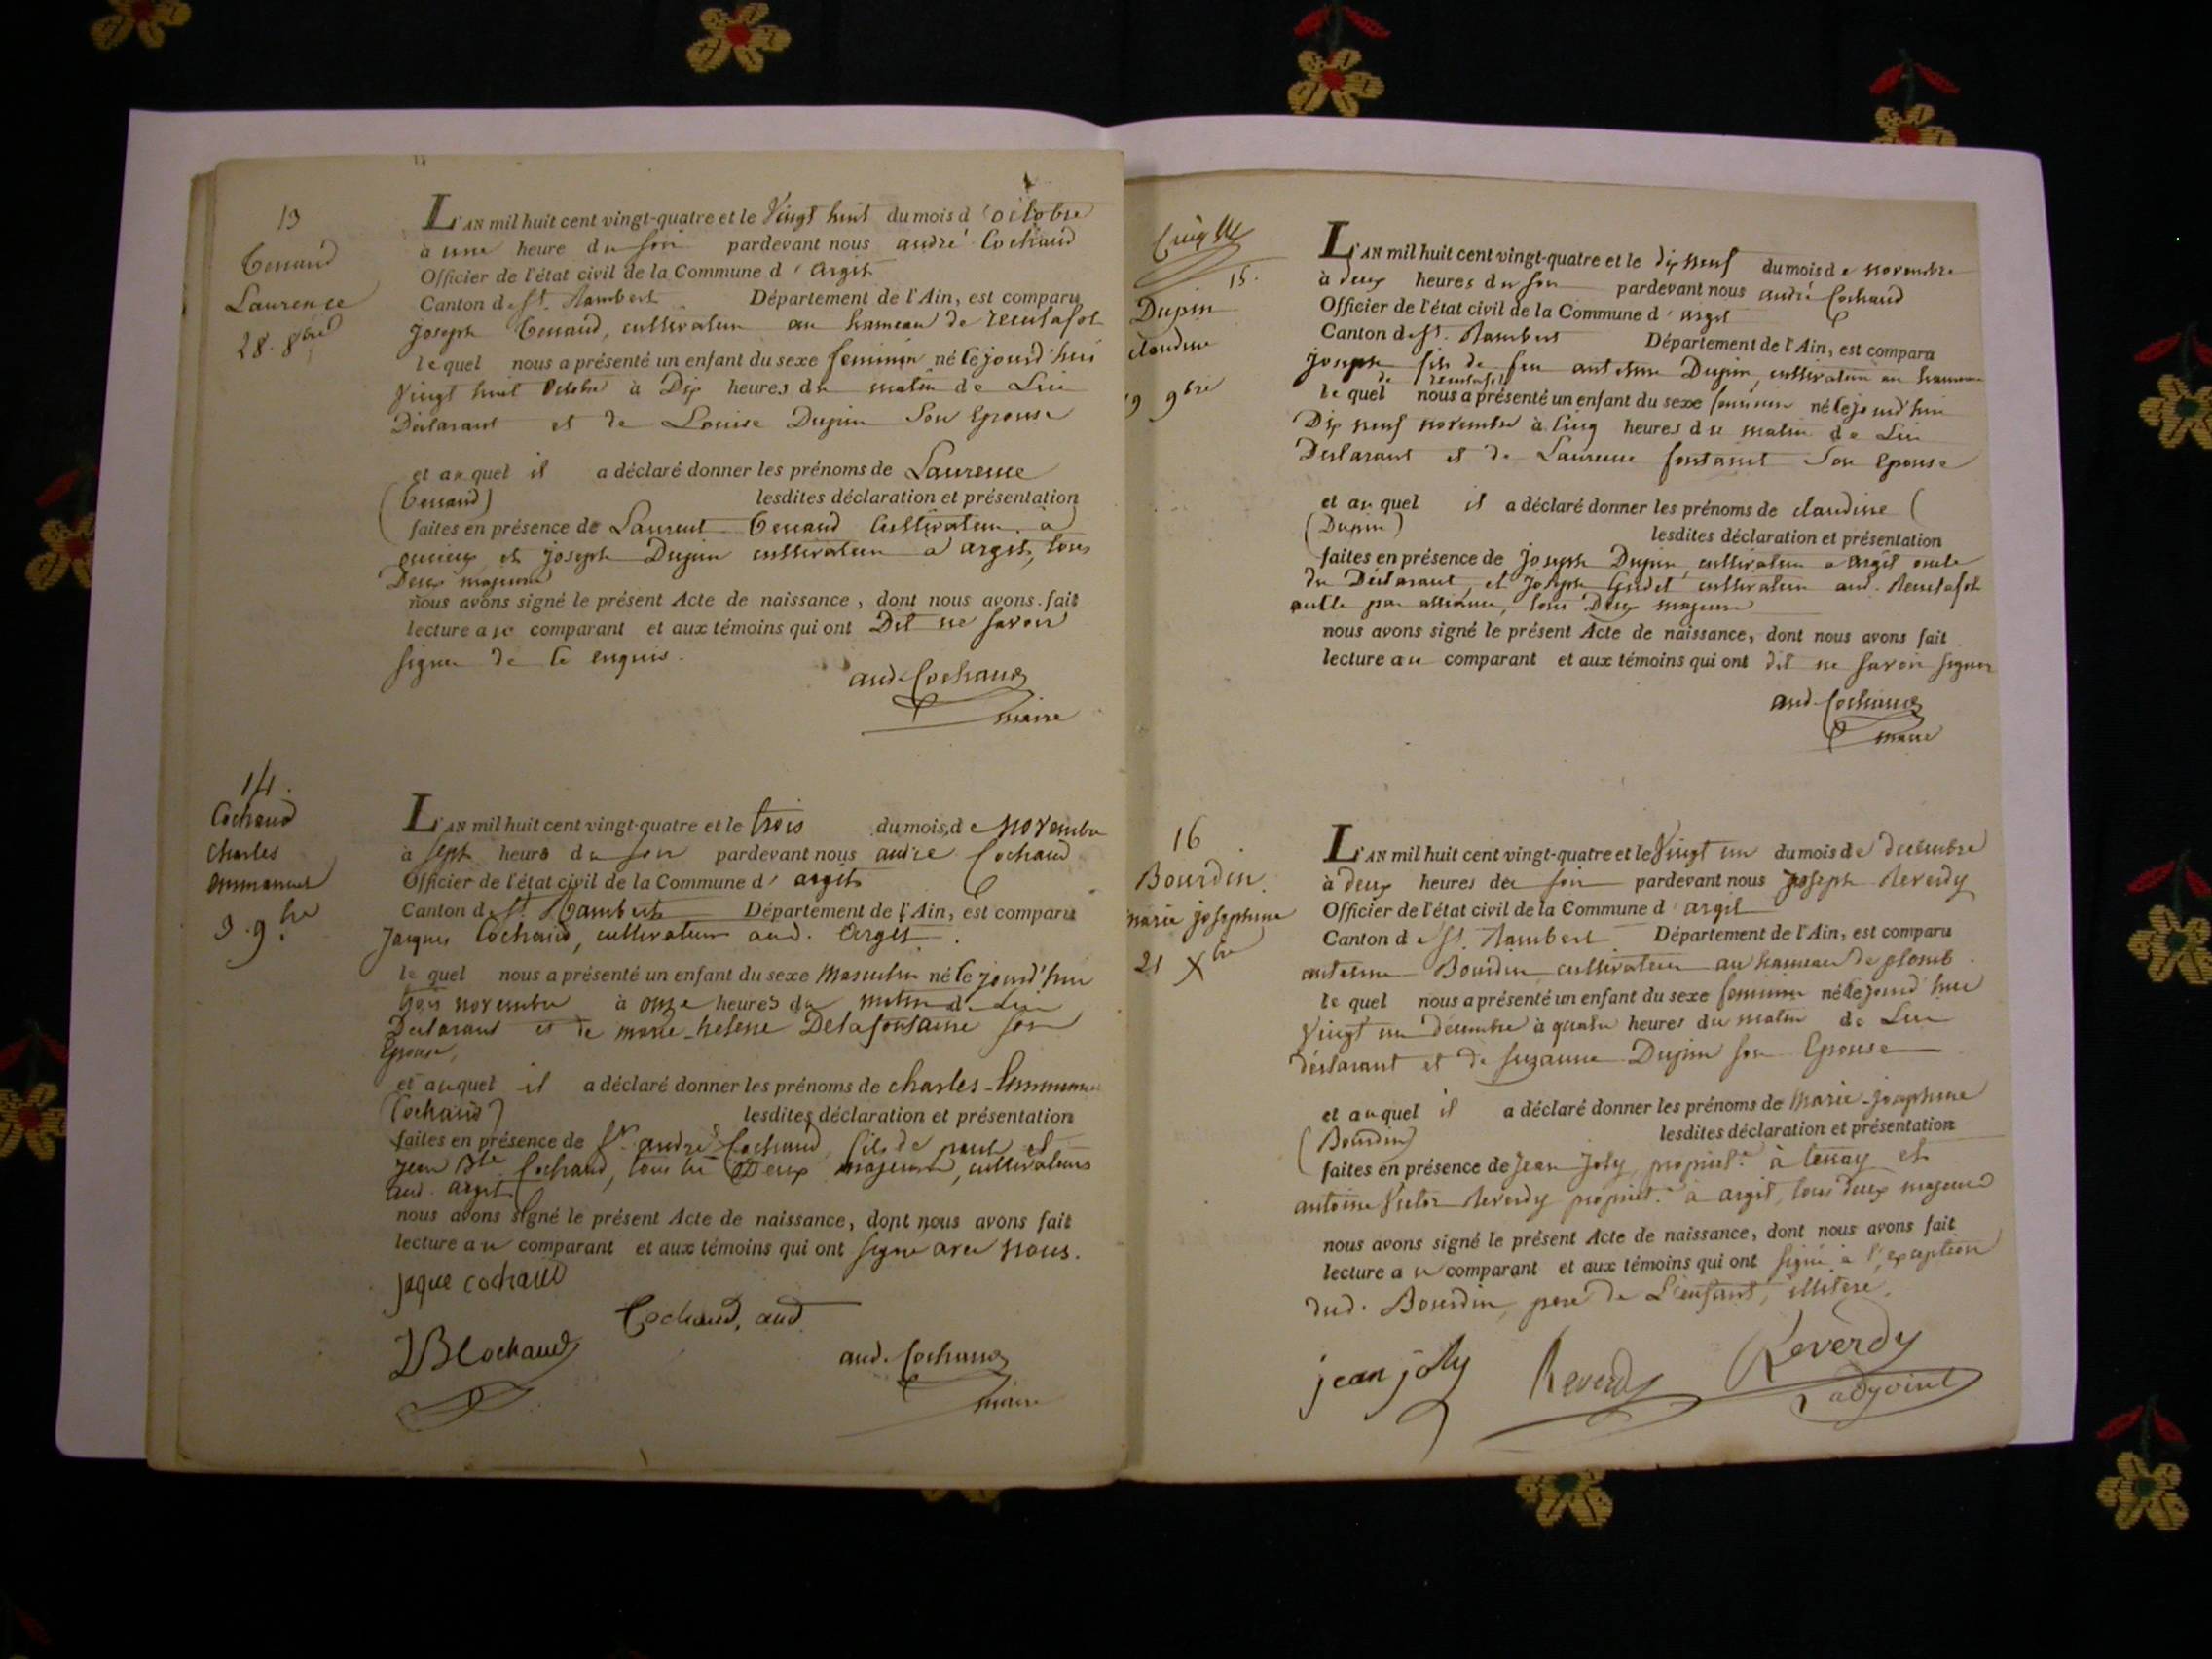 13
Laurence
28. 8bre
L'AN mil huit cent vingt-quatre et le Vingt huit du mois d'octobre
à une heure du soir pardevant nous andré Cochaud
Officier de l'état civil de la Commune d'argis
Canton de St. Rambert Département de l'Ain, est comparu
Joseph cultivateur au hameau de
lequel nous a présenté un enfant du sexe feminin né cejourd'hui
Vingt huit octobre à Dix heures du matin de Lui
Déclarant et de Louise Dupin Son Epouse
et auquel il a déclaré donner les prénoms de Laurence
lesdites déclaration et présentation
faites en présence de Laurent Cultivateur à
oncieux et joseph Dupin cultivateur à argis, tous
Deux majeurs
nous avons signé le présent Acte de naissance, dont nous avons fait
lecture au comparant et aux témoins qui ont Dit ne savoir
signer de ce enquis.
and. Cochaud
maire
14.
Cochaud
charles
emmanuel
3. 9bre
L'AN mil huit cent vingt-quatre et le trois du mois de novembre
à sept heure du soir pardevant nous andré Cochaud
Officier de l'état civil de la Commune d'argis
Canton de St. Rambert Département de l'Ain, est comparu
Jacques Cochaud, cultivateur aud. argis.
lequel nous a présenté un enfant du sexe masculin né cejourd'hui
trois novembre à onze heures du matin de Lui
Déclarant et de marie-helene Delafontaine son
Epouse,
et auquel il a déclaré donner les prénoms de charles-Emmanuel
(Cochaud) lesdites déclaration et présentation
faites en présence de Sr. andré Cochaud, fils de paul et
jean Bte. Cochaud, tous les Deux majeurs, cultivateurs
aud. argis
nous avons signé le présent Acte de naissance, dont nous avons fait
lecture au comparant et aux témoins qui ont signé avec nous.
jaque cochaud
Cochaud, and
JB Cochaud
and. Cochaud
maire
15.
Dupin
claudine
19 9bre
L'AN mil huit cent vingt-quatre et le dix neuf du mois de novembre
à deux heures du soir pardevant nous andré Cochaud
Officier de l'état civil de la Commune d'argis
Canton de St. Rambert Département de l'Ain, est comparu
joseph fils de feu antelme Dupin, cultivateur au hameau
de
lequel nous a présenté un enfant du sexe feminin né cejourd'hui
Dix neuf novembre à Cinq heures du matin de Lui
Déclarant et de Laurence fontanet Son Epouse
et auquel il a déclaré donner les prénoms de claudine (
(Dupin) lesdites déclaration et présentation
faites en présence de joseph Dupin, cultivateur à argis oncle
du Déclarant, et Joseph cultivateur aud.
oncle par alliance, tous Deux majeurs
nous avons signé le présent Acte de naissance, dont nous avons fait
lecture au comparant et aux témoins qui ont dit ne savoir signer
and. Cochaud
maire
16
Bourdin
marie josephine
21 Xbre
L'AN mil huit cent vingt-quatre et le Vingt un du mois de decembre
à deux heures du soir pardevant nous joseph Reverdy
Officier de l'état civil de la Commune d'argis
Canton de St. Rambert Département de l'Ain, est comparu
antelme Bourdin cultivateur au hameau de plomb.
lequel nous a présenté un enfant du sexe feminin né cejourd'hui
Vingt un décembre à quatre heures du matin de Lui
déclarant et de suzanne Dupin son Epouse
et auquel il a déclaré donner les prénoms de Marie-josephine
(Bourdin) lesdites déclaration et présentation
faites en présence de jean joly, propriét.e à tenay et
antoine Victor Reverdy propriét.e à argis, tous deux majeurs
nous avons signé le présent Acte de naissance, dont nous avons fait
lecture au comparant et aux témoins qui ont signé à l'exception
dud. Bourdin, pere de L'enfant, illitere.
jean joly Reverdy Reverdy
adjoint